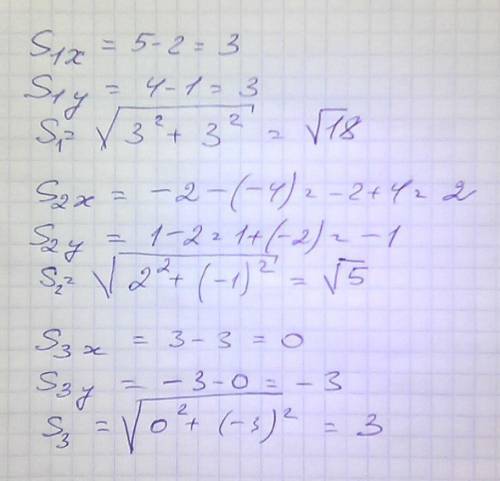 S₁ₓ = 5-2 = 3
S₁ᵧ = 4-1 = 3
S₁= √(3² + 3²) = √18
S₂ₓ = -2-(-4)= -2+4= 2
S₂ᵧ = 1-2=1+(-2)= -1
S₂= √(2²+(-1)²) = √5
S₃ₓ = 3-3 = 0
S₃ᵧ = -3-0 = -3
S₃ = √(0²+(-3)²) = 3